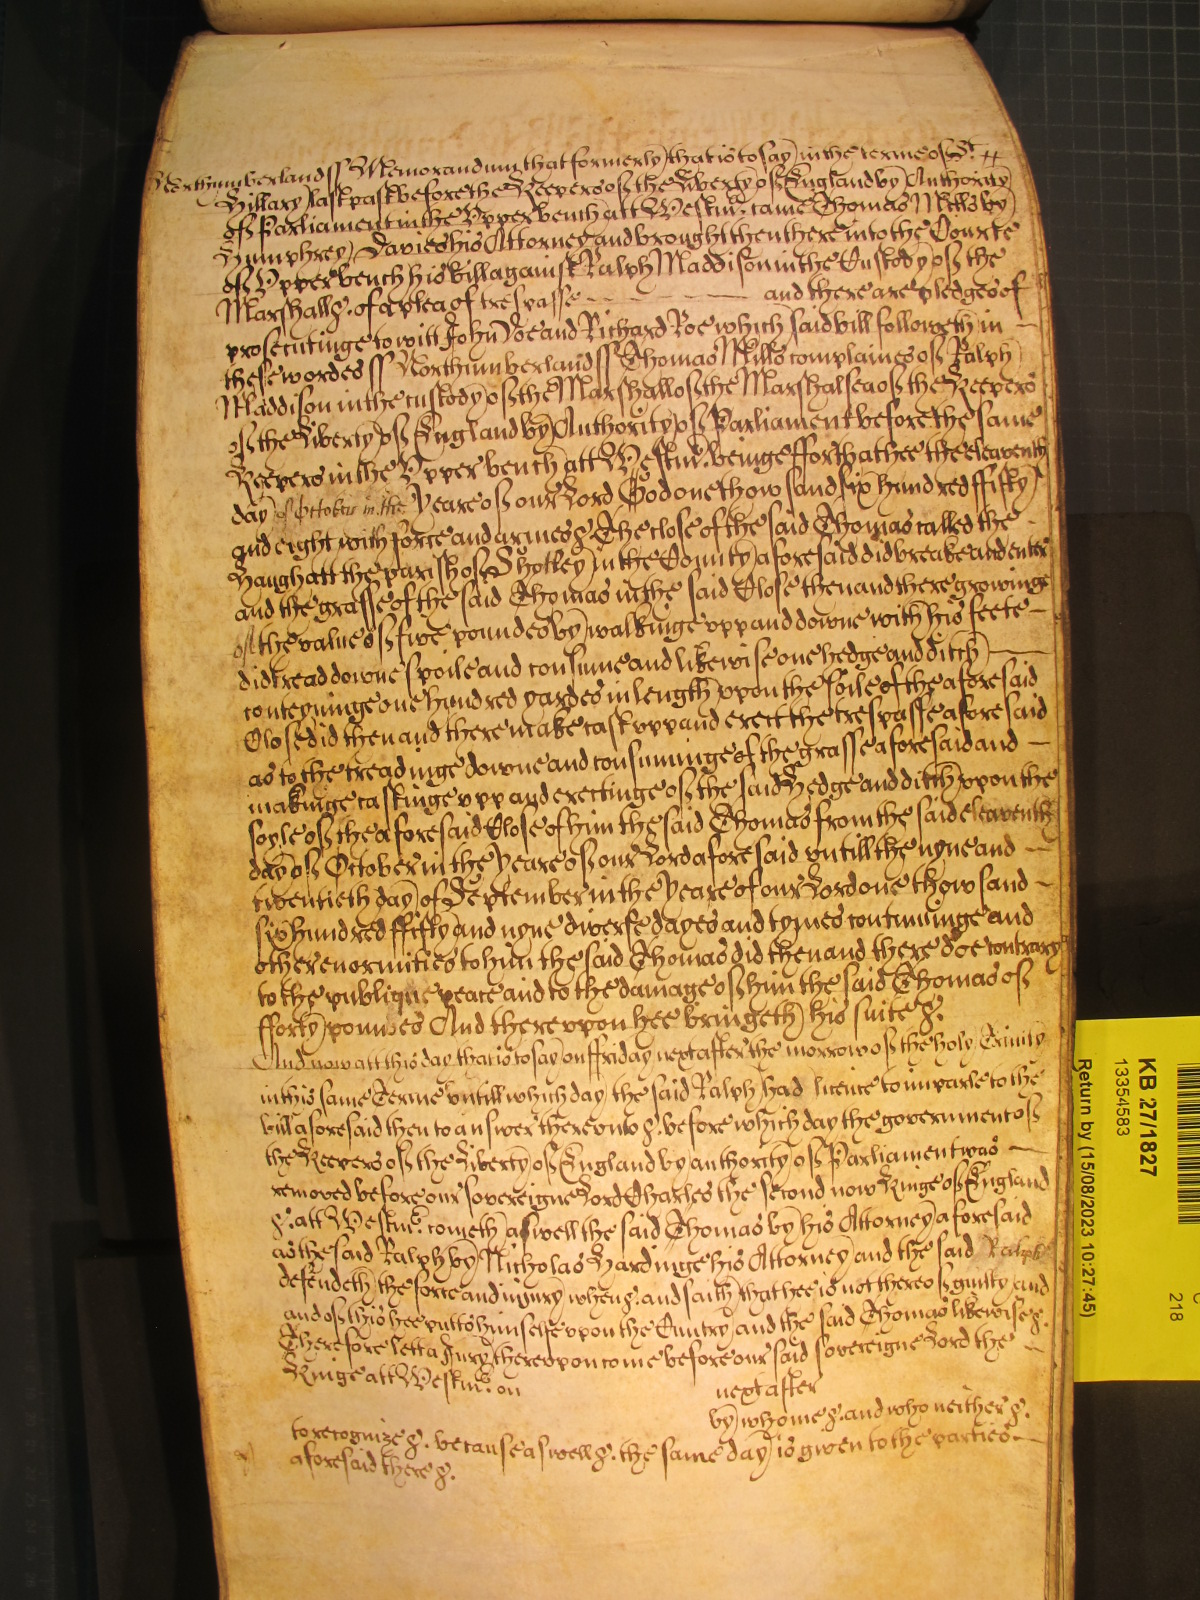 Northumberland ss Memorandum that formerly that is to say in the terme of St.
Hillary last past before the Keepers of the Liberty of England by Authority
of Parliament in the Upper bench att Westmr. came Thomas Mills by
Humphrey Davies his Attorney and brought then there into the Courte
of Upper bench his bill against Ralph Maddison in the Custody of the
Marshall &c. of a plea of trespasse - - - - - and there are pledges of
prosecutinge to witt John Doe and Richard Roe which said bill followeth in -
these wordes ss Northumberland ss Thomas Mills complaines of Ralph
Maddison in the custody of the Marshall of the Marshalsea of the Keepers
of the Liberty of England by Authority of Parliament before the same
Keepers in the Upper bench att Westmr. beinge ffor that hee the eleaventh
day of October in the Yeare of our Lord God one thowsand six hundred ffifty
and eight with force and armes &c. The close of the said Thomas called the -
Haugh att the parish of Shotley in the County aforesaid did breake and enter
and the grasse of the said Thomas in the said Close then and there growinge
of the value of five poundes by walkinge upp and downe with his feete -
did tread downe spoile and consume and likewise one hedge and ditch -
conteyninge one hundred yardes in length uppon the soile of the aforesaid
Close did then and there make cast upp and erect the trespasse aforesaid
as to the treadinge downe and consuminge of the grasse aforesaid and -
makinge castinge upp and erectinge of the said hedge and ditch uppon the
soyle of the aforesaid Close of him the said Thomas from the said eleaventh
day of October in the Yeare of our Lord aforesaid untill the nyne and -
twentieth day of September in the Yeare of our Lord one thowsand -
six hundred ffifty and nyne diverse dayes and tymes continuinge and
other enormities to him the said Thomas did then and there doe contrary
to the publique peace and to the damage of him the said Thomas of
fforty poundes And thereupon hee bringeth his suite &c.
And now att this day that is to say on ffriday next after the morrow of the holy Trinity
in this same Terme untill which day the said Ralph had licence to imparle to the
bill aforesaid then to answer thereunto &c. before which day the government of
the Keepers of the Liberty of England by authority of Parliament was -
removed before our sovereigne Lord Charles the second now Kinge of England
&c. att Westmr. cometh aswell the said Thomas by his Attorney aforesaid
as the said Ralph by Nicholas Hardinge his Attorney and the said Ralph
defendeth the force and injury when &c. and saith that hee is not thereof guilty and
and of this hee putts himselfe upon the Cuntry and the said Thomas likewise &c.
Therefore lett a Jury thereupon come before our said sovereigne Lord the -
Kinge att Westmr. on next after
by whome &c. and who neither &c.
to recognize &c. because aswell &c. the same day is given to the parties -
aforesaid there &c.
KB 27/1827
13354583
Return by (15/08/2023 10:27:45)
218